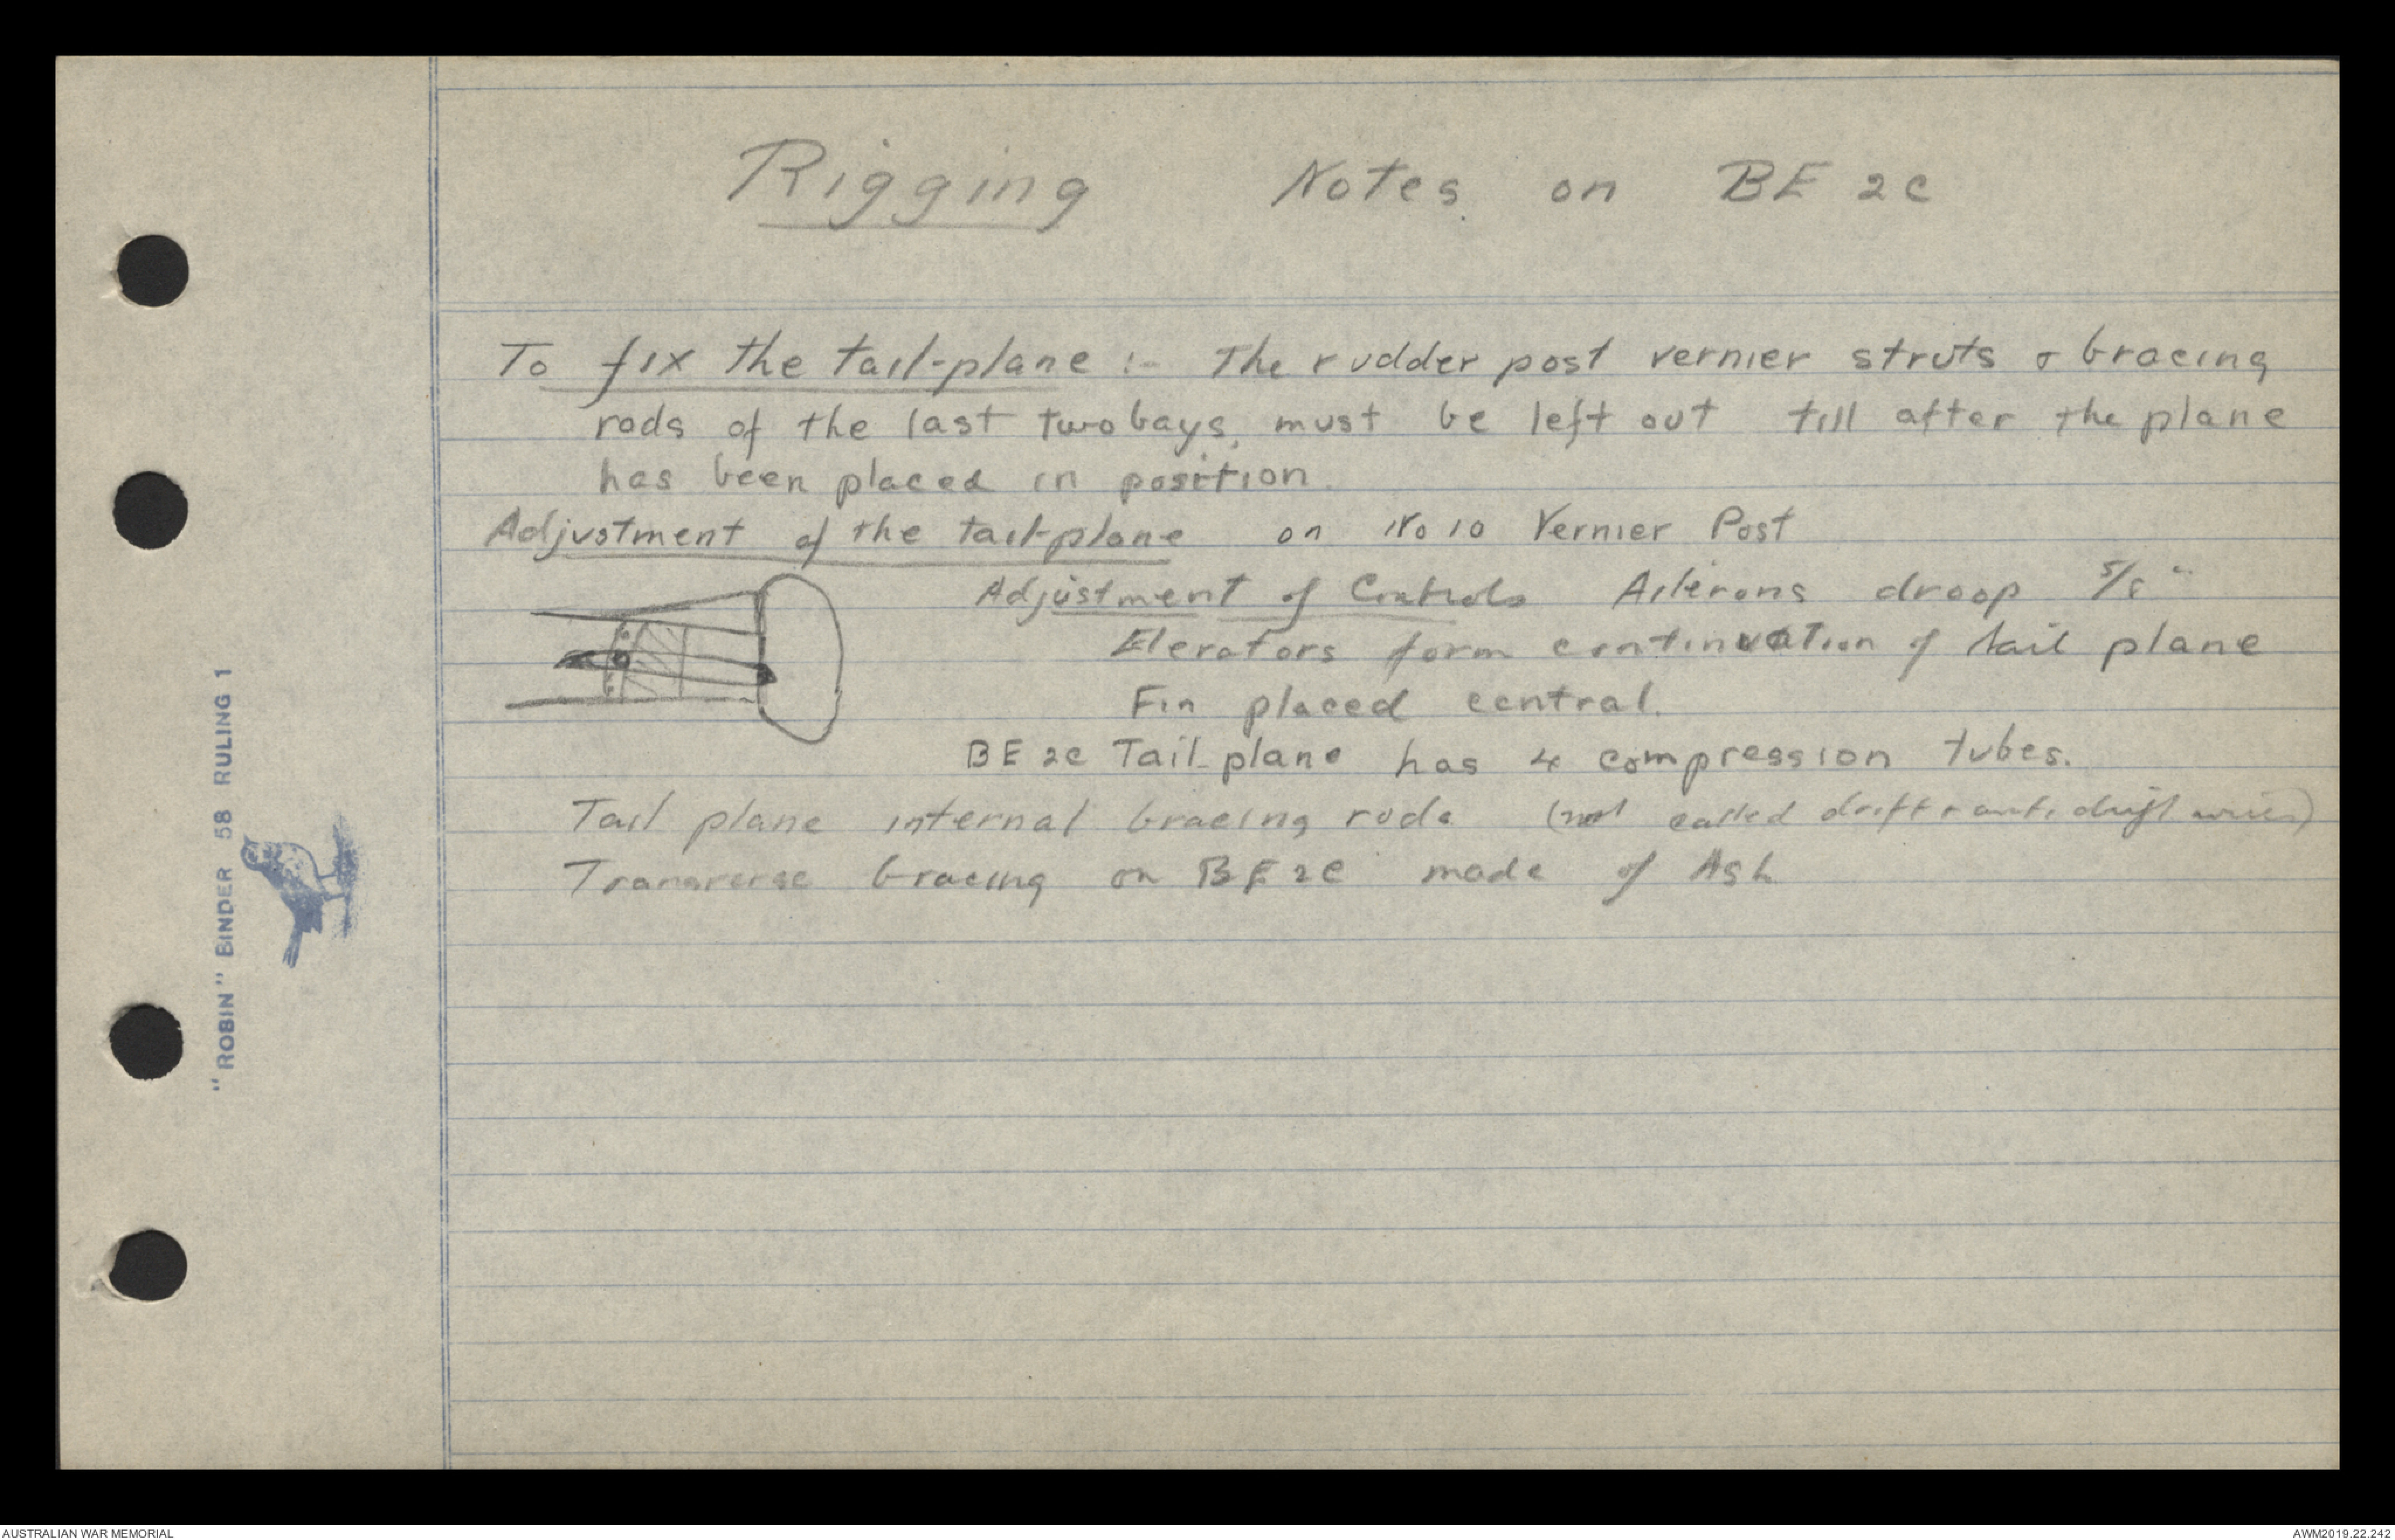 Rigging Notes on BE 2c
To fix the tail-plane :- The rudder post vernier struts & bracing
rods of the last two bays, must be left out till after the plane
has been placed in position.
Adjustment of the tail-plane on No 10 Vernier Post
Adjustment of Controls Ailerons droop 5/8"
Elevators form continuation of tail plane
Fin placed central.
BE 2c Tail-plane has 4 compression tubes.
Tail plane internal bracing rods (not called drift & anti drift wires)
Transverse bracing on BE 2c made of Ash
"ROBIN" BINDER 58 RULING 1
AUSTRALIAN WAR MEMORIAL
AWM2019.22.242